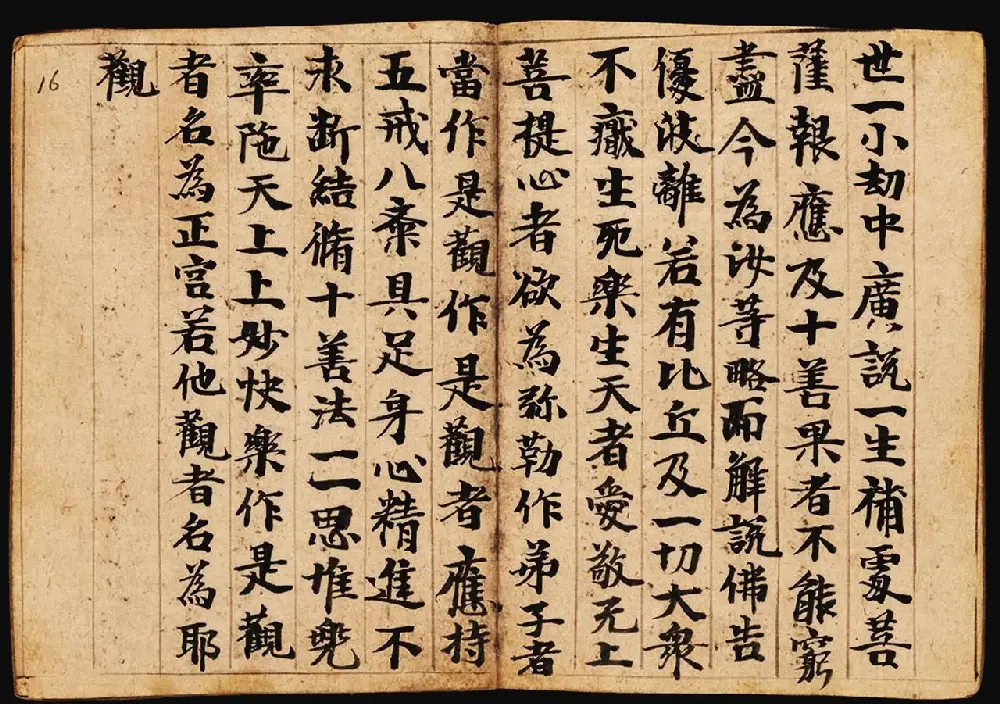 世一小劫中廣說一生補處菩
薩報應及十善果者不能窮
盡今為汝等略而解說佛告
優波離若有比丘及一切大衆
不生死樂生天者愛敬无上
菩提心者欲為弥勒作弟子者
當作是觀作是觀者應持
五戒八齋具足身心精進不
求断結脩十善法一一思惟兜
率陁天上上妙快樂作是觀
者名為正宫若他觀者名為耶
觀
16